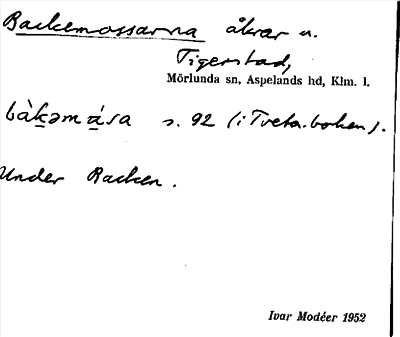 Backemossarna åkrar u.
Tigerstad,
Mörlunda sn, Aspelands hd, Klm. l.
bàk̲əmá̲sa s. 92 (i Tveta.boken).
Under Backen.
Ivar Modéer 1952